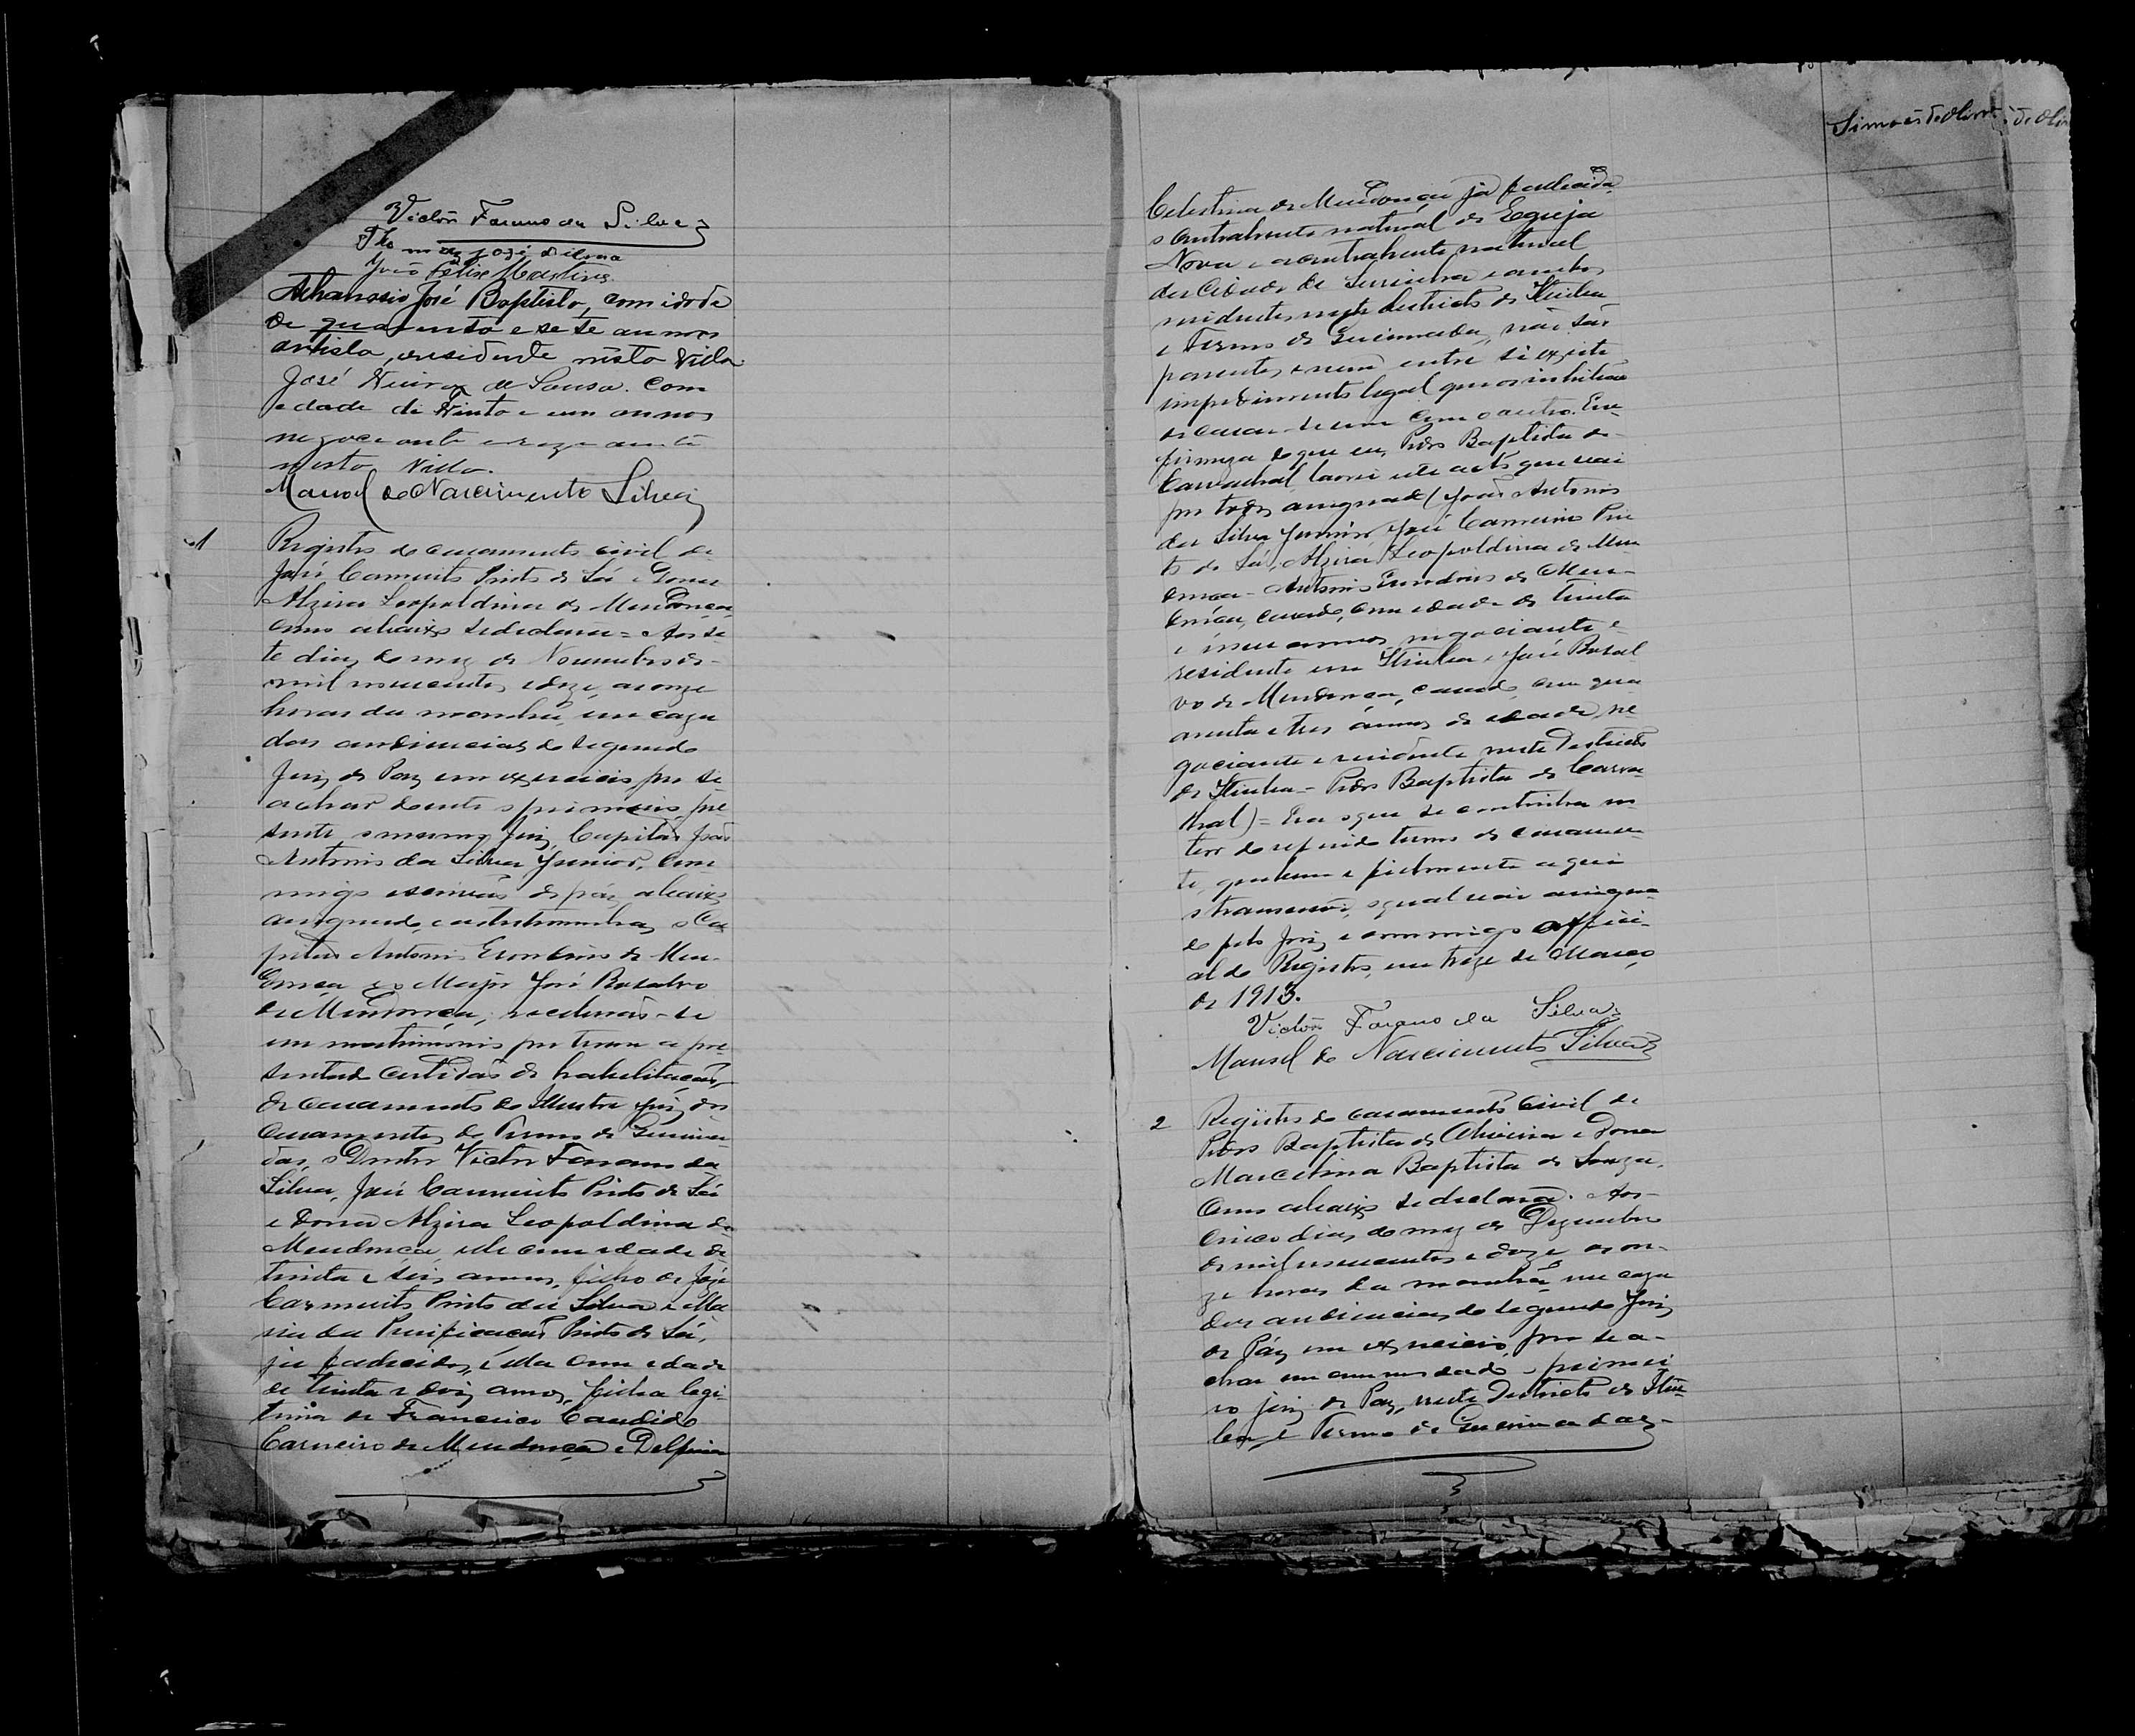 Victor Farano da Silva
Thomaz José dilma
João Felix Martins
Athanasio José Baptista, com idade
de quarenta e sete annos
artista, residente nesta Villa.
José de Sousa. Com
edade di trinta e um annos
negociante e rezidente
nesta Villa.
Manoel do Nascimento Silva
1
Registro do casamento civil de
José Carmerito Pinto de Sá e Dona
Alzira Leopoldina de Mendonça,
como abaixo se declara = Aos se
te dias do mez de Novembro de
mil novecentos e doze, as onze
horas da manhã, em caza
das audiencias do segundo
Juiz de Paz em exercicio, por se
achar doente o primeiro, pre
sente o mesmo Juiz, Capitão João
Antonio da Silva Junior, com
migo escrivão de paz, abaixo
assignado, e as testemunhas, o Ca
pitão Antonio de Men
donça e o Major José Rosalvo
de Mendonça, receberão-se
em matrimonio por terem a pre
sentado certidão de habilitação
de casamento do Illustre Juiz dos
casamentos do Termo de Queima
das, o Doutor Victor Faranno da
Silva, José Carmerito Pinto de Sá
e Dona Alzira Leopoldina de
Mendonca elle com edade de
trinta e seis annos, filho de José
Carmerito Pinto da Silva e Ma
ria da Purificação Pinto de Sá,
ja fallecidos, e ella com edade
de trinta e dois annos, filha legi
tima de Francisco Candido
Carneiro de Mendonça e Delfina
Simões de Oliveira
Celestina de Mendonça já fallecida
o contrahente natural de Egreja
Nova e a contrahente natural
da Cidade de Serrinha e ambos
residentes neste districto de Itiuba
e Termo de Queimadas, não são
parentes e nem entre si existe
impedimento legal que os inhiba
de casar-se um com o outro. Em
firmeza do que eu, Pedro Baptista de
Carvalhal lavrei este acto que vai
por todos assignado (João Antonio
da Silva Junior, José Carmerito Pin
to de Sá, Alzira Leopoldina de Men
donça - Antonio de Men
donça, casado, com edade de trinta
e annos, negociante e
residente em Itiuba e José Rosal
vo de Mendonça, casado, com qua
renta e tres annos de edade, ne
gociante e residente neste Districto
de Itiuba - Pedro Baptista de Carva
lhal) = Era o que se continha no
teor do referido termo de casamen
to, que bem e fielmente aqui
o transcrevi, o qual vai assigna
do pelo Juiz e commigo Offici
al do Registro, em treze de Março
de 1913.
Victor Farano da Silva
Manoel do Nascimento Silva
2
Registro do casamento Civil de
Pedro Baptista de Oliveira e Dona
Marcelina Baptista de Souza,
como abaixo se declara. Aos
cinco dias do mez de Dezembro
de mil novecentos e doze as on
ze horas da manhã em caza
das audiencias do segundo Juiz
de Páz em exercicio, por se a-
char em commodado o primei
ro juiz de Paz, neste Districto de Itiu
ba, e Termo de Queimadas